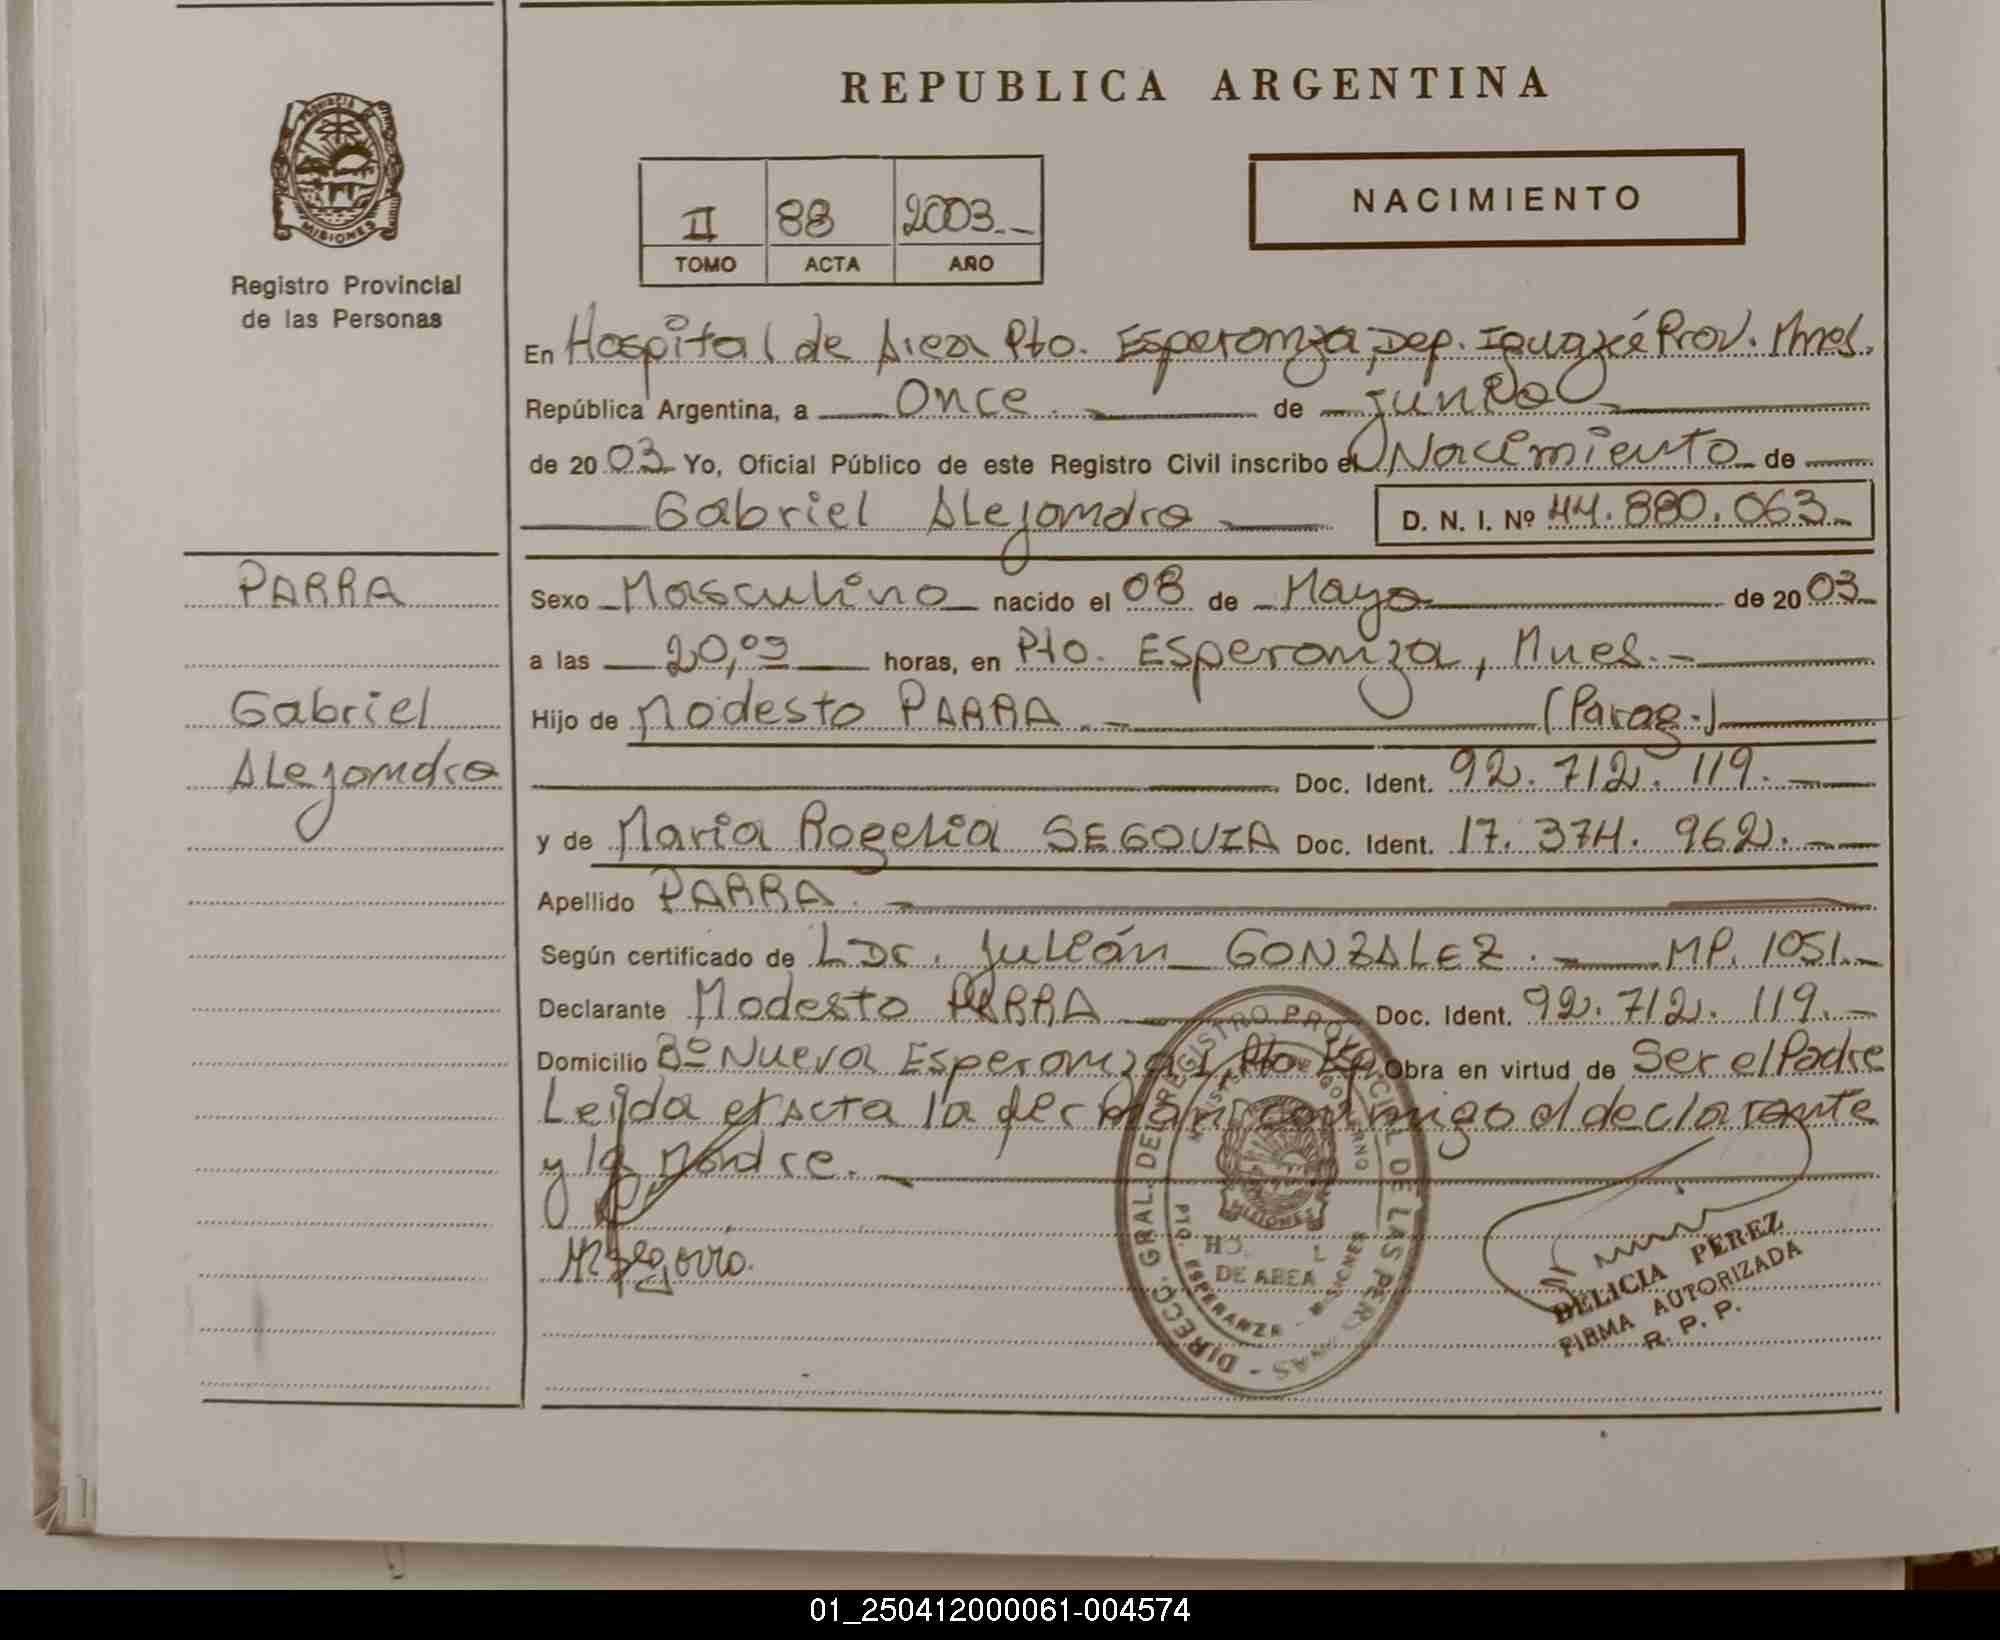 REPUBLICA ARGENTINA
PROVINCIA
MISIONES
Registro Provincial
de las Personas
II 88 2003.
TOMO ACTA AÑO
NACIMIENTO
En Hospital de Area Pto. Esperanza, Dep. Iguazú Prov. Mnes.
República Argentina, a Once de junio
de 2003 Yo, Oficial Público de este Registro Civil inscribo el Nacimiento de
Gabriel Alejandro D. N. I. Nº 44.880.063.
PARRA
Gabriel
Alejandro
Sexo Masculino nacido el 08 de Mayo de 2003
a las 20,09 horas, en Pto. Esperanza, Mnes.
Hijo de Modesto PARRA. (Parag.)
Doc. Ident. 92.712.119.
y de Maria Rogelia SEGOVIA Doc. Ident. 17.374.962.
Apellido PARRA.
Según certificado de LDC. Julián GONZALEZ. MP. 1051.
Declarante Modesto PARRA Doc. Ident. 92.712.119.
Domicilio Bº Nueva Esperanza, Pto. Obra en virtud de Ser el Padre
Leída el acta la firman conmigo el declarante
y la Madre.
DIRECC. GRAL. DEL REGISTRO PROVINCIAL DE LAS PERSONAS
MINISTERIO DE GOBIERNO
MISIONES
DE AREA
PTO. ESPERANZA - MISIONES
DELICIA PEREZ
FIRMA AUTORIZADA
R. P. P.
01_250412000061-004574